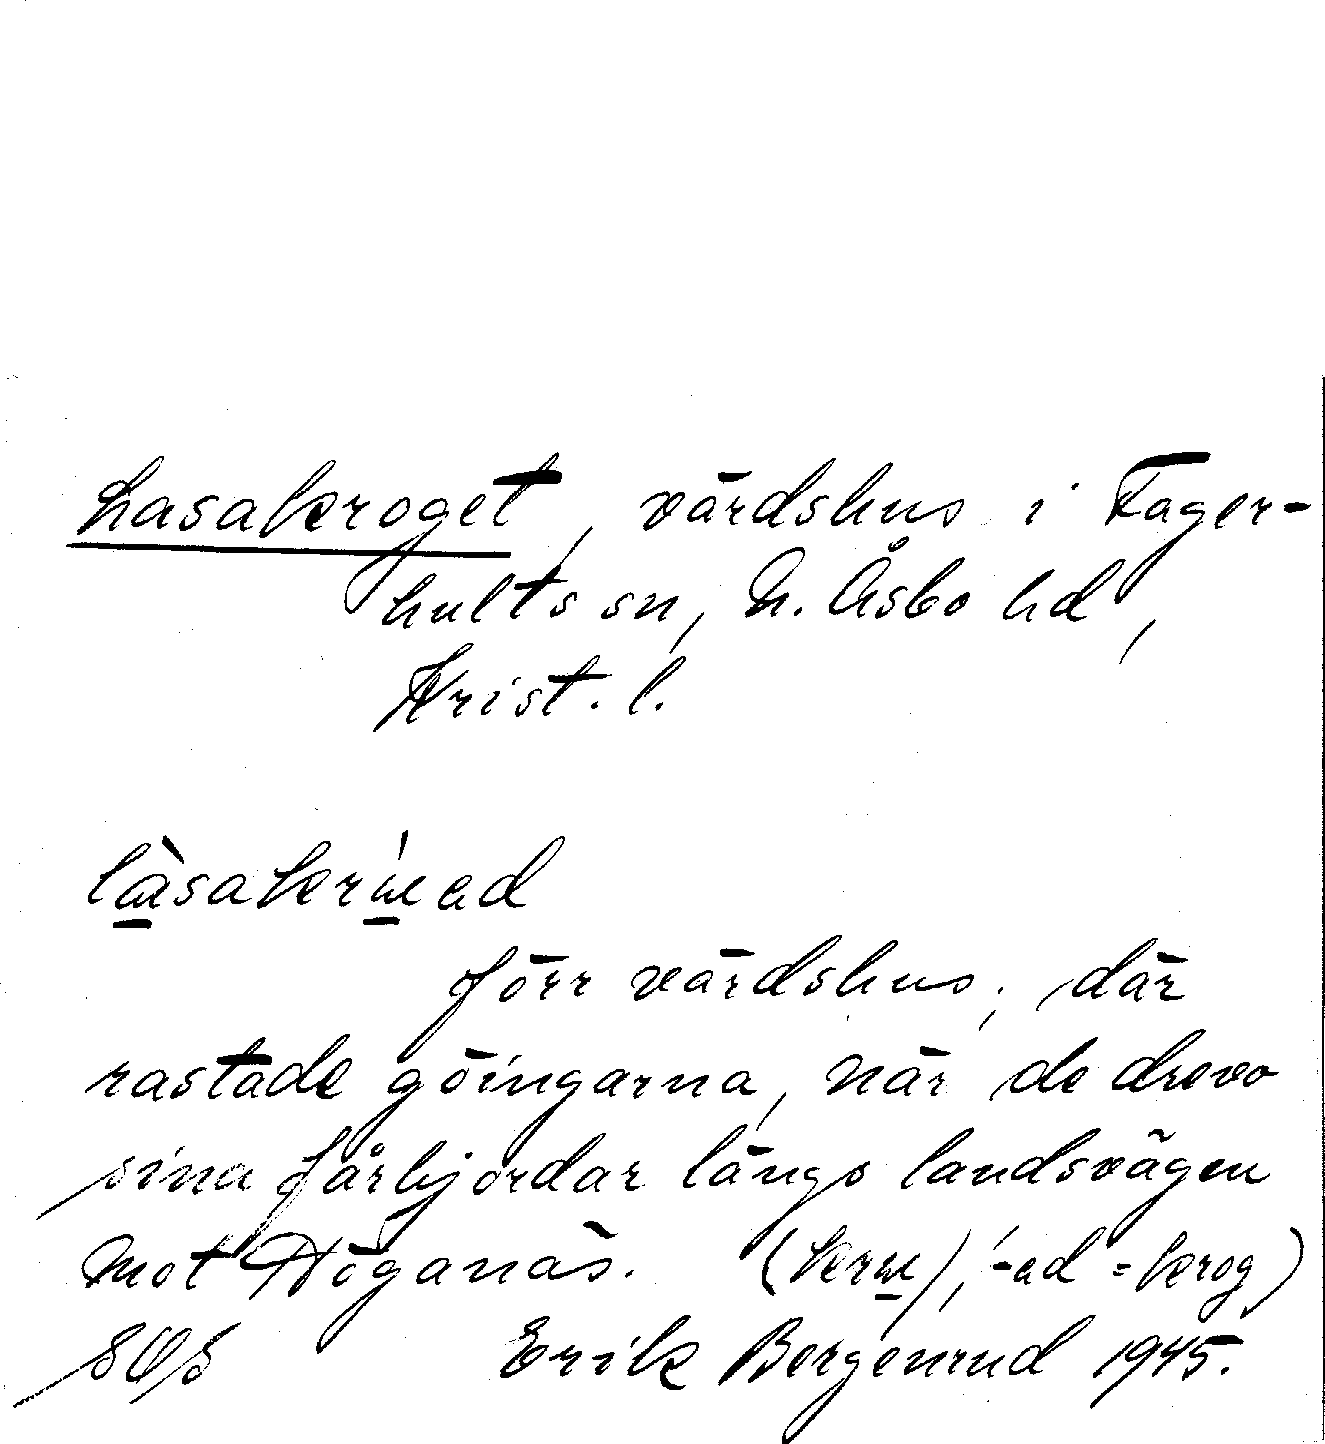 Lasakroget, värdshus i Fager-
hults sn, N. Åsbo hd,
Krist. l.
förr värdshus; där
rastade göingarna, när de drevo
sina fårhjordar längs landsvägen
mot Höganäs. = krog)
SOS Erik Bergenrud 1945.